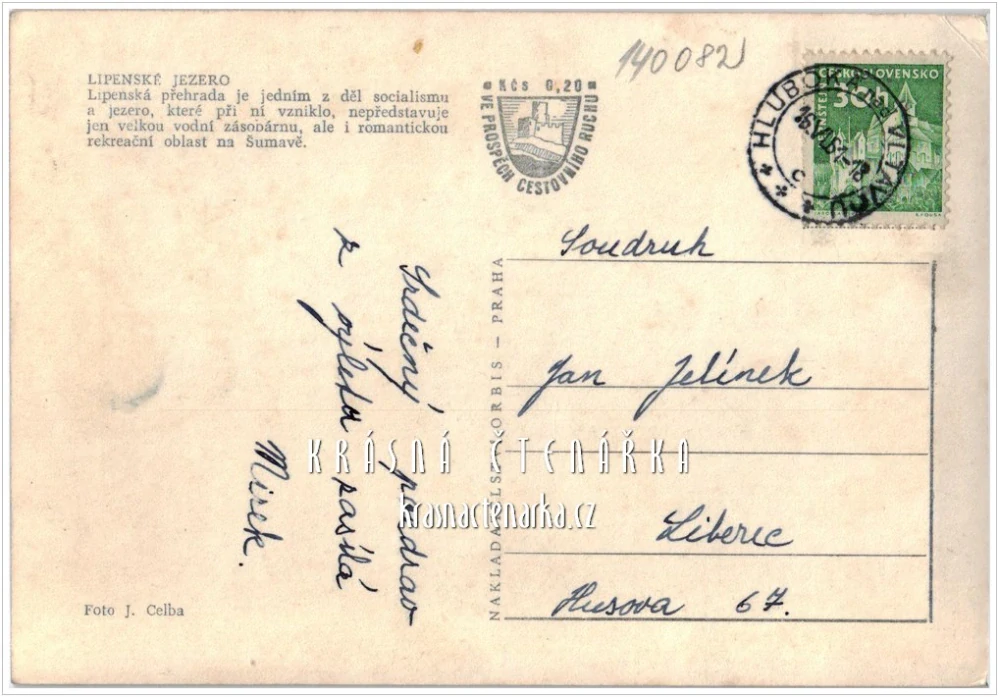 140082
LIPENSKÉ JEZERO
Lipenská přehrada je jedním z děl socialismu
a jezero, které při ní vzniklo, nepředstavuje
jen velkou vodní zásobárnu, ale i romantickou
rekreační oblast na Šumavě.
Kčs 0,20
VE PROSPĚCH CESTOVNÍHO RUCHU
ČESKOSLOVENSKO
30h
HLUBOKÁ NAD VLTAVOU
Soudruh
Jan Jelínek
Liberec
Husova 67.
Srdečný pozdrav
z výletu zasílá
Mirek.
NAKLADATELSTVÍ ORBIS — PRAHA
KRÁSNÁ ČTENÁŘKA
krasnactenarka.cz
Foto J. Celba